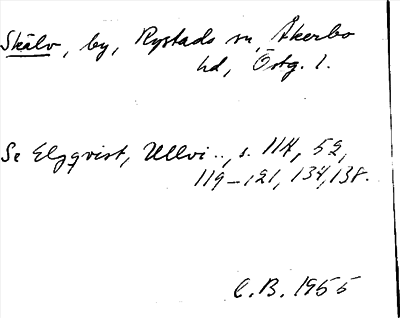 Skälv, by, Rystads sn, Åkerbo
hd, Östg. l.
Se Elgqvist, Ullvi.., s. 114, 52,
119-121, 134, 138.
C.B. 1955